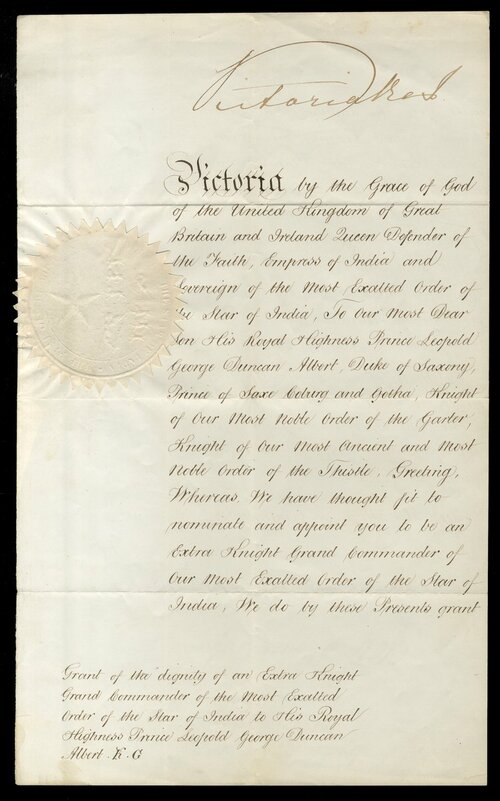 Victoria R & I
Victoria by the Grace of God
of the United Kingdom of Great
Britain and Ireland Queen Defender of
the Faith, Empress of India and
Sovereign of the Most Exalted Order of
the Star of India, To Our Most Dear
Son His Royal Highness Prince Leopold
George Duncan Albert, Duke of Saxony,
Prince of Saxe Coburg and Gotha, Knight
of Our Most Noble Order of the Garter,
Knight of Our Most Ancient and Most
Noble Order of the Thistle, Greeting,
Whereas We have thought fit to
nominate and appoint you to be an
Extra Knight Grand Commander of
Our Most Exalted Order of the Star of
India, We do by these Presents grant
Grant of the dignity of an Extra Knight
Grand Commander of the Most Exalted
Order of the Star of India to His Royal
Highness Prince Leopold George Duncan
Albert. K. G